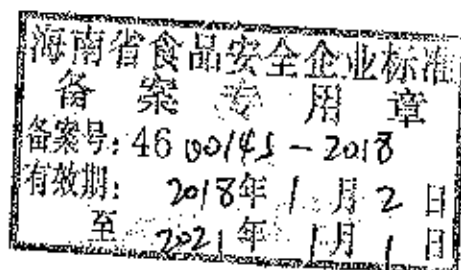 海南省食品安全企业标准
备案专用章
备案号：46 0014S－2018
有效期：2018年1月2日
至 2021年1月1日